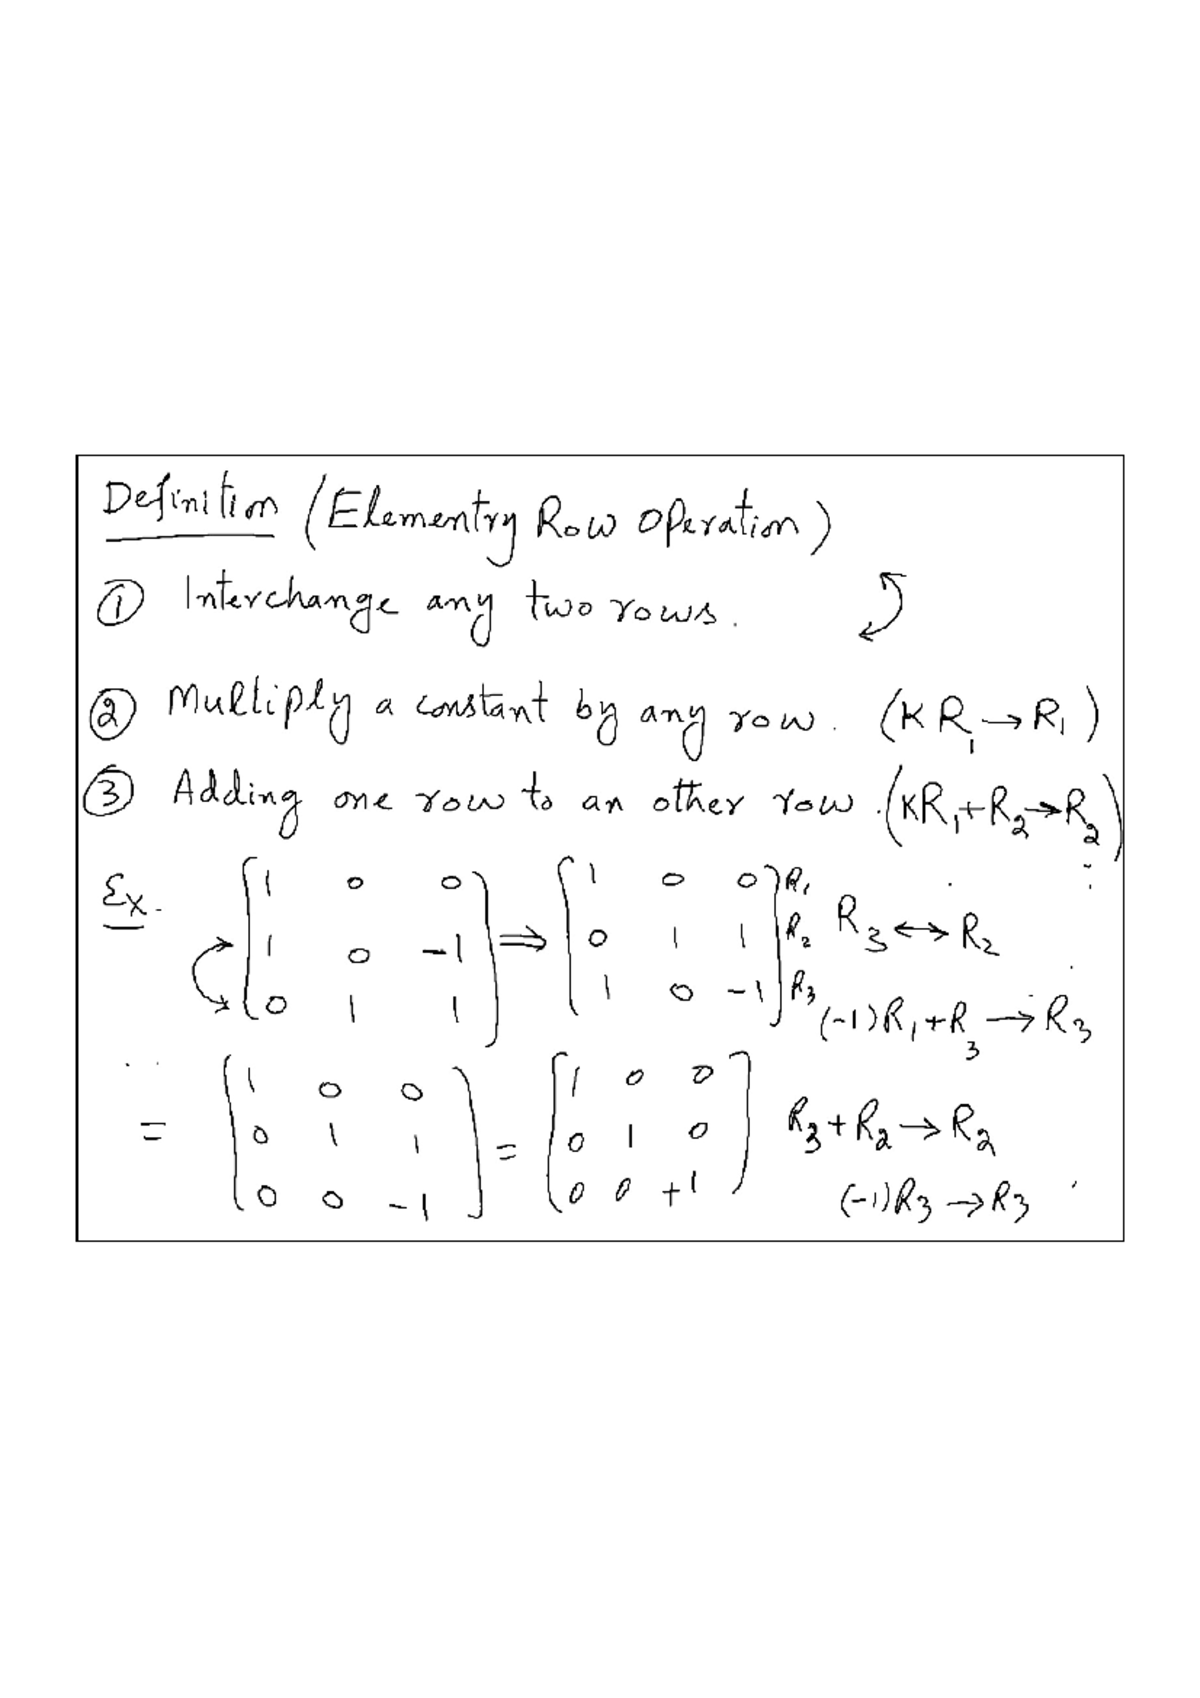 Definition (Elementry Row Operation)
① Interchange any two rows.
② Multiply a constant by any row. (K R₁ → R₁)
③ Adding one row to an other row. (KR₁+R₂→R₂)
Ex. [1 0 0 ⇒ [1 0 0] R₁
1 0 -1 0 1 1 R₂ R₃ ↔ R₂
0 1 1] 1 0 -1] R₃ (-1)R₁+R₃ → R₃
[1 0 0 [1 0 0
= 0 1 1 = 0 1 0 R₃+R₂→R₂
0 0 -1] 0 0 +1] (-1)R₃→R₃